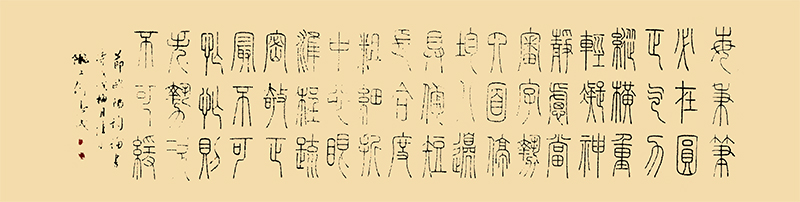 每秉筆
必在圓
正气力
縱橫重
輕凝神
靜慮當
審字勢
四面停
均八邊
具備短
長合度
粗細折
中心眼
準程疏
密敧正
最不可
忙忙則
失勢次
不可緩